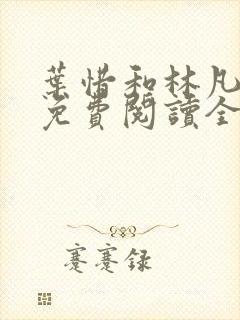 葉惜和林凡
免費閱讀全
蹇蹇録